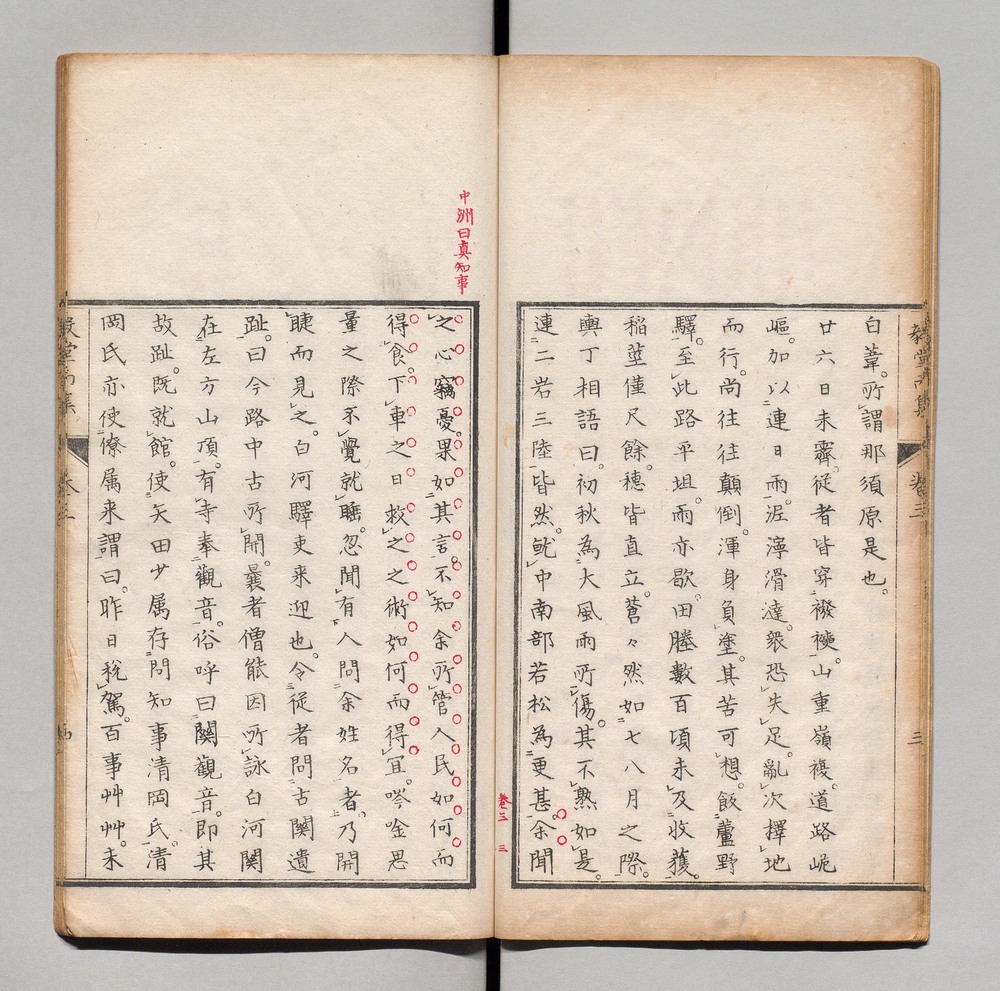 白葦。所謂那須原是也。
廿六日未霽。従者皆穿襏襫。山重嶺複。道路岖
嶇。加以連日雨。泥濘滑澾。衆恐失足。亂次擇地
而行。尚往往顛倒。渾身負塗。其苦可想。飯蘆野
驛。至此路平坦。雨亦歇。田塍數百頃未及收穫。
稲莖僅尺餘。穂皆直立。蒼々然如七八月之際。
輿丁相語曰。初秋為大風雨所傷。其不熟如是。
連二岩三陸皆然。就中南部若松為更甚。余聞
中洲曰真知事
之心竊憂。果如其言。不知余所管人民如何而
得食。下車之日救之之術如何而得宜。唫唫思
量之際。不覺就睡。忽聞有人問余姓名者。乃開
睫而見之。白河驛吏来迎也。令従者問古関遺
趾。曰今路中古所開。曩者僧能因所詠白河関
在左方山頂。有寺奉觀音。俗呼曰関觀音。即其
故趾。既就館。使矢田少属存問知事清岡氏。清
岡氏亦使僚属来謂曰。昨日税駕。百事艸艸。未
卷三
三
卷三 三